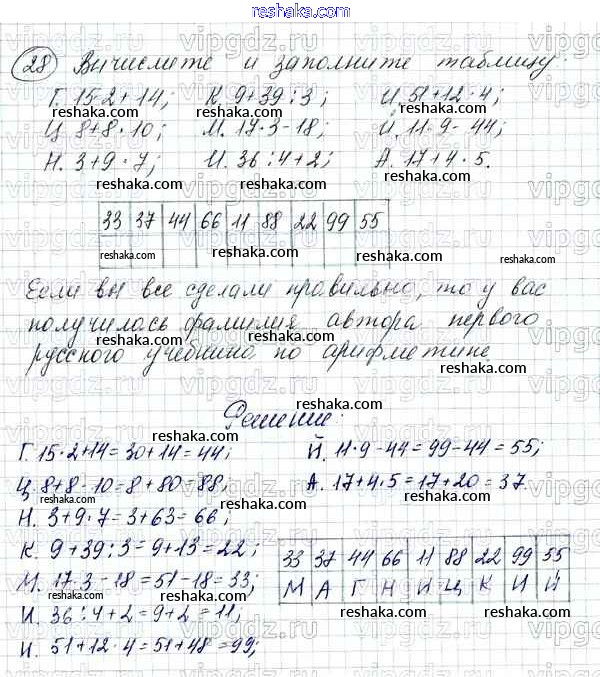 reshaka.com
28 Вычислите и заполните таблицу.
Г. 15·2+14; К. 9+39:3; И. 51+12·4;
Ц. 8+8·10; М. 17·3-18; Й. 11·9-44;
Н. 3+9·7; И. 36:4+2; А. 17+4·5.
33 37 44 66 11 88 22 99 55
Если вы все сделали правильно, то у вас
получилась фамилия автора первого
русского учебника по арифметике
Решение:
Г. 15·2+14=30+14=44; Й. 11·9-44=99-44=55;
Ц. 8+8·10=8+80=88; А. 17+4·5=17+20=37.
Н. 3+9·7=3+63=66;
К. 9+39:3=9+13=22;
М. 17·3-18=51-18=33;
И. 36:4+2=9+2=11;
И. 51+12·4=51+48=99;
33 37 44 66 11 88 22 99 55
М А Г Н И Ц К И Й